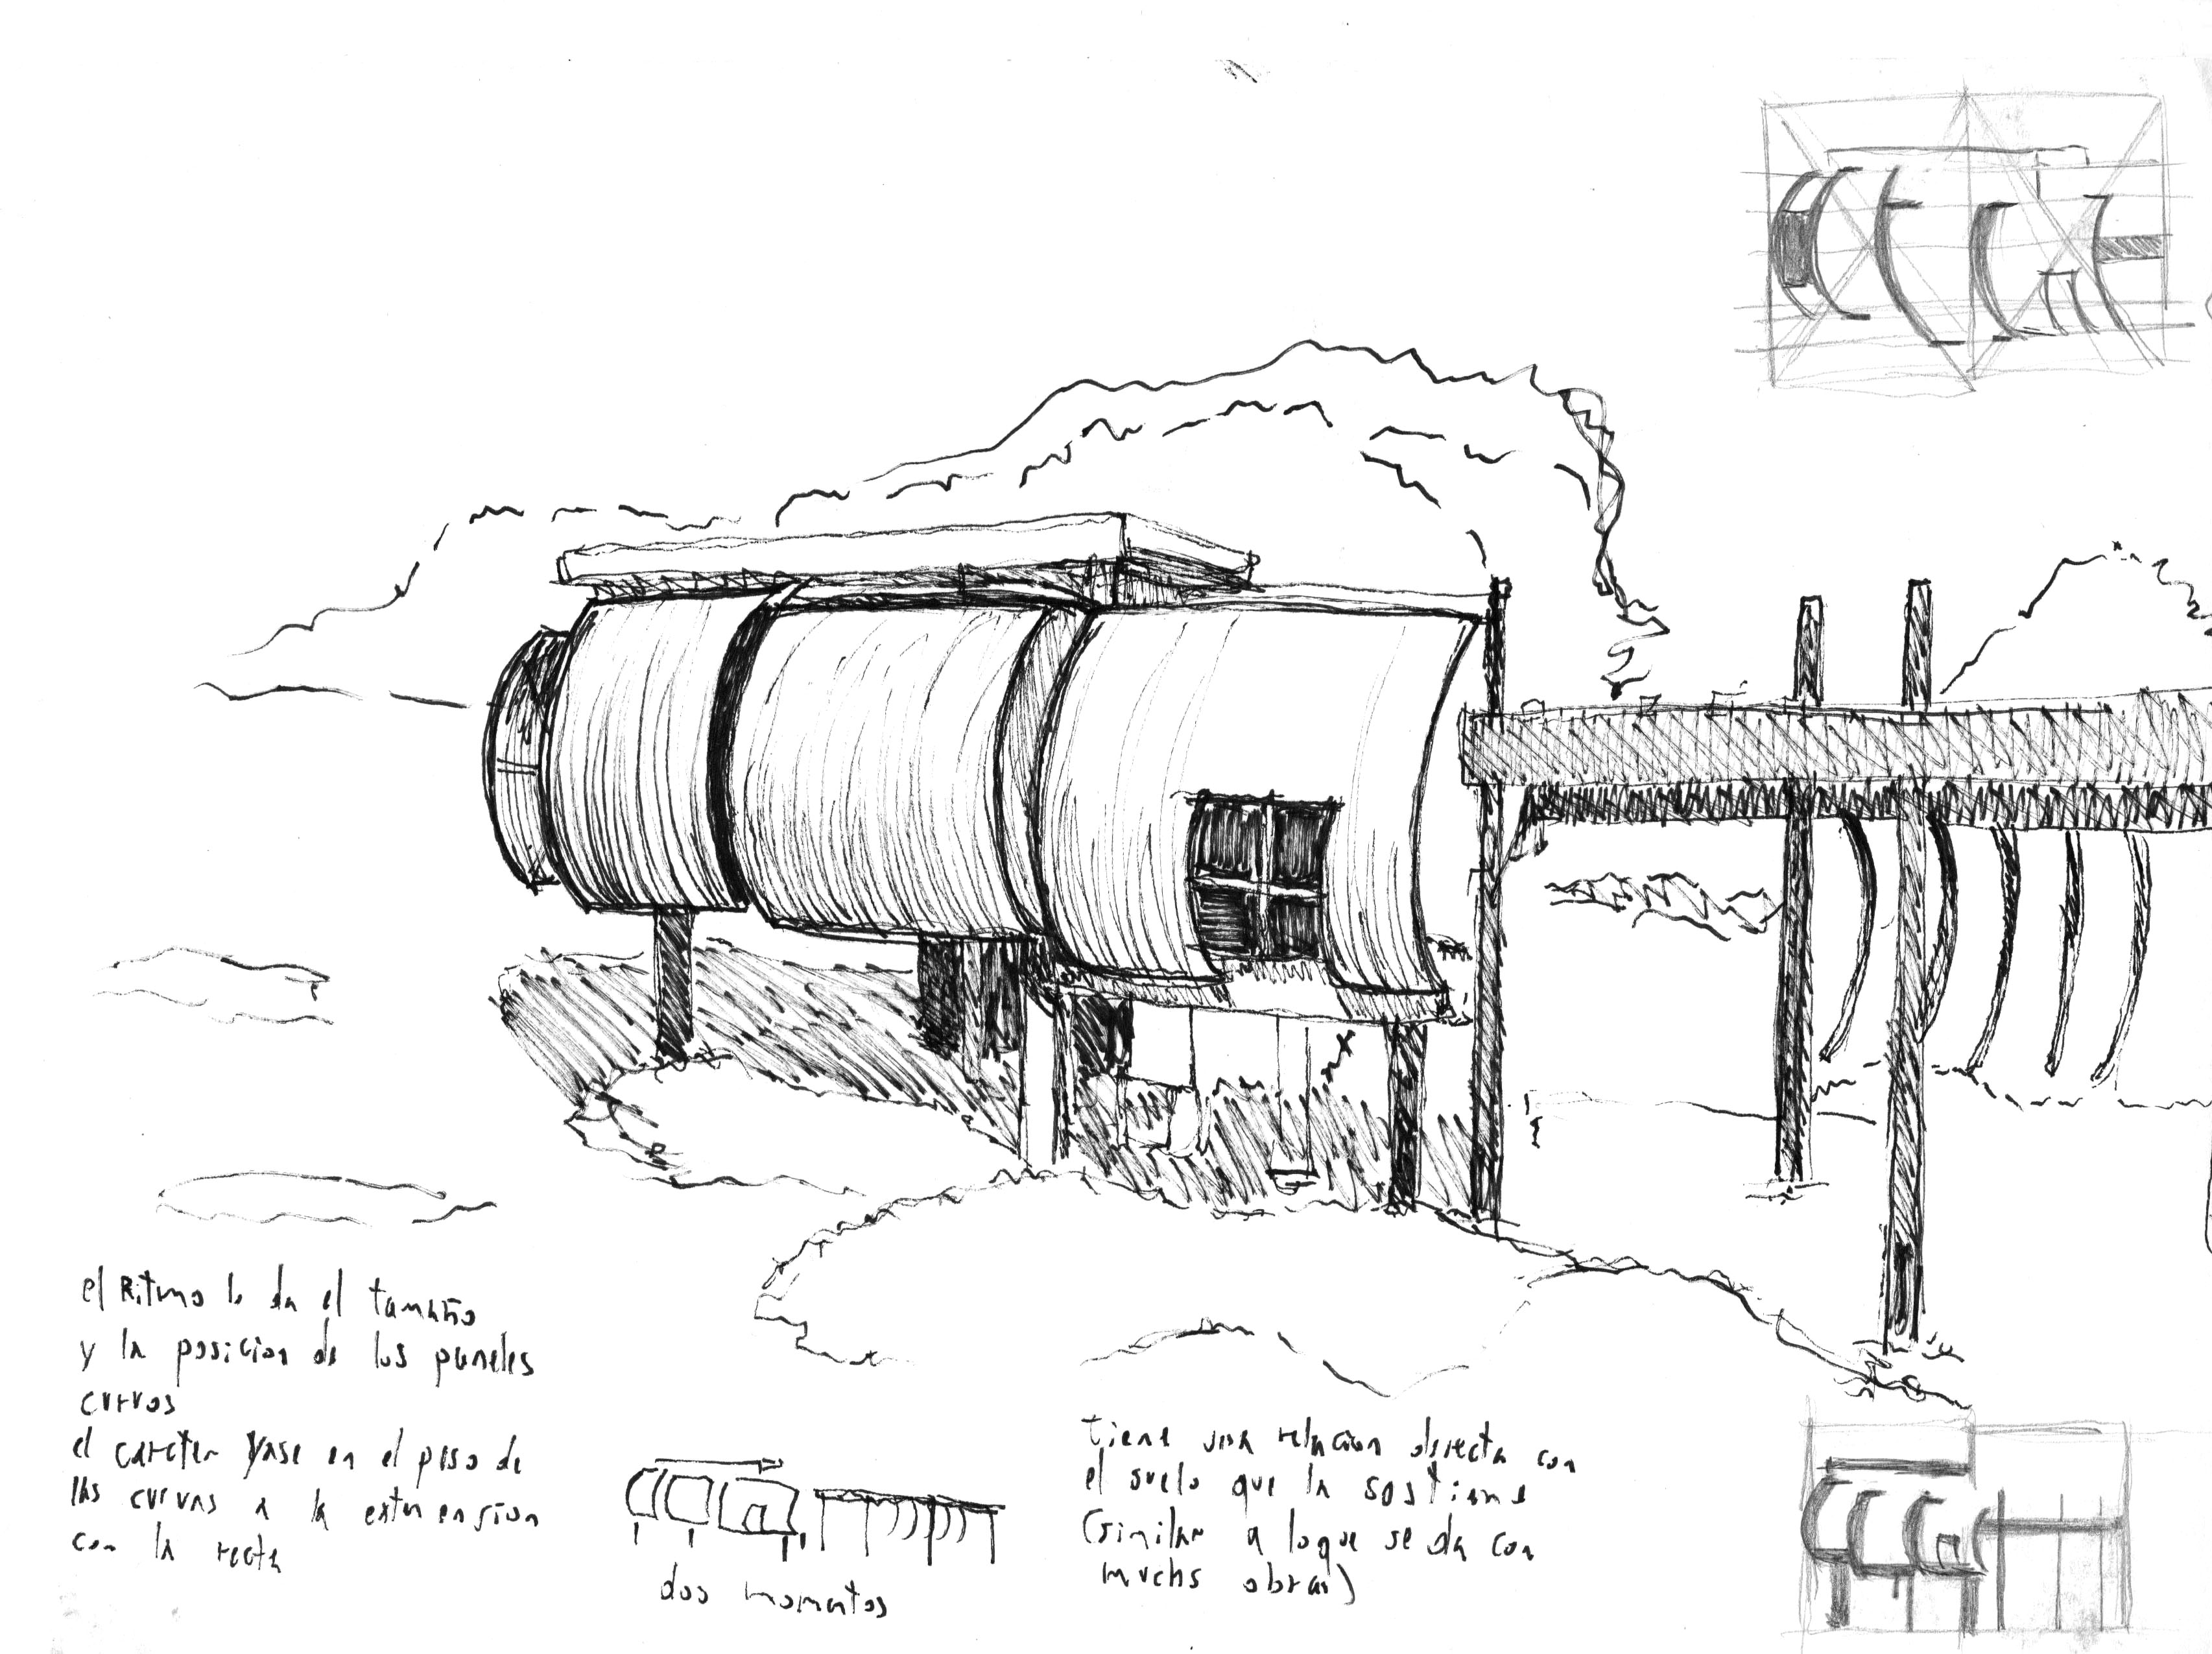 el Ritmo lo da el tamaño
y la posicion de los paneles
curvos
el carcter yase en el peso de
las curvas a la extenension
con la recta
dos momentos
tiene una relacion directa con
el suelo que la sostiene
(similar a loque se da con
muchs obras)